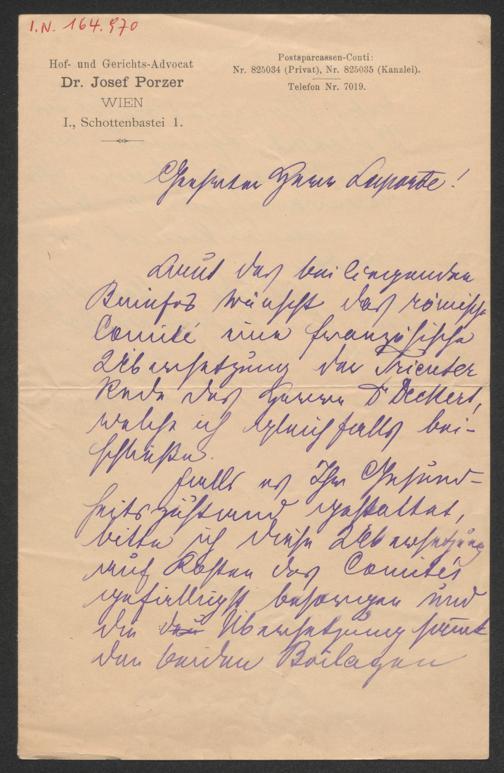 I.N. 164.970
Hof- und Gerichts-Advocat
Dr. Josef Porzer
WIEN
I., Schottenbastei 1.
Postsparcassen-Conti:
Nr. 825034 (Privat), Nr. 825035 (Kanzlei).
Telefon Nr. 7019.
Geehrter Herr Laporte!
Laut des beiliegenden
Briefes wünscht das römische
Comité eine französische
Übersetzung der Trienter
Rede des Herrn Dr Deckert,
welche ich gleichfalls bei-
schließe.
Falls es Ihr Gesund-
heitszustand gestattet,
bitte ich diese Übersetzung
auf Kosten des Comités
gefälligst besorgen und
die Übersetzung samt
den beiden Beilagen